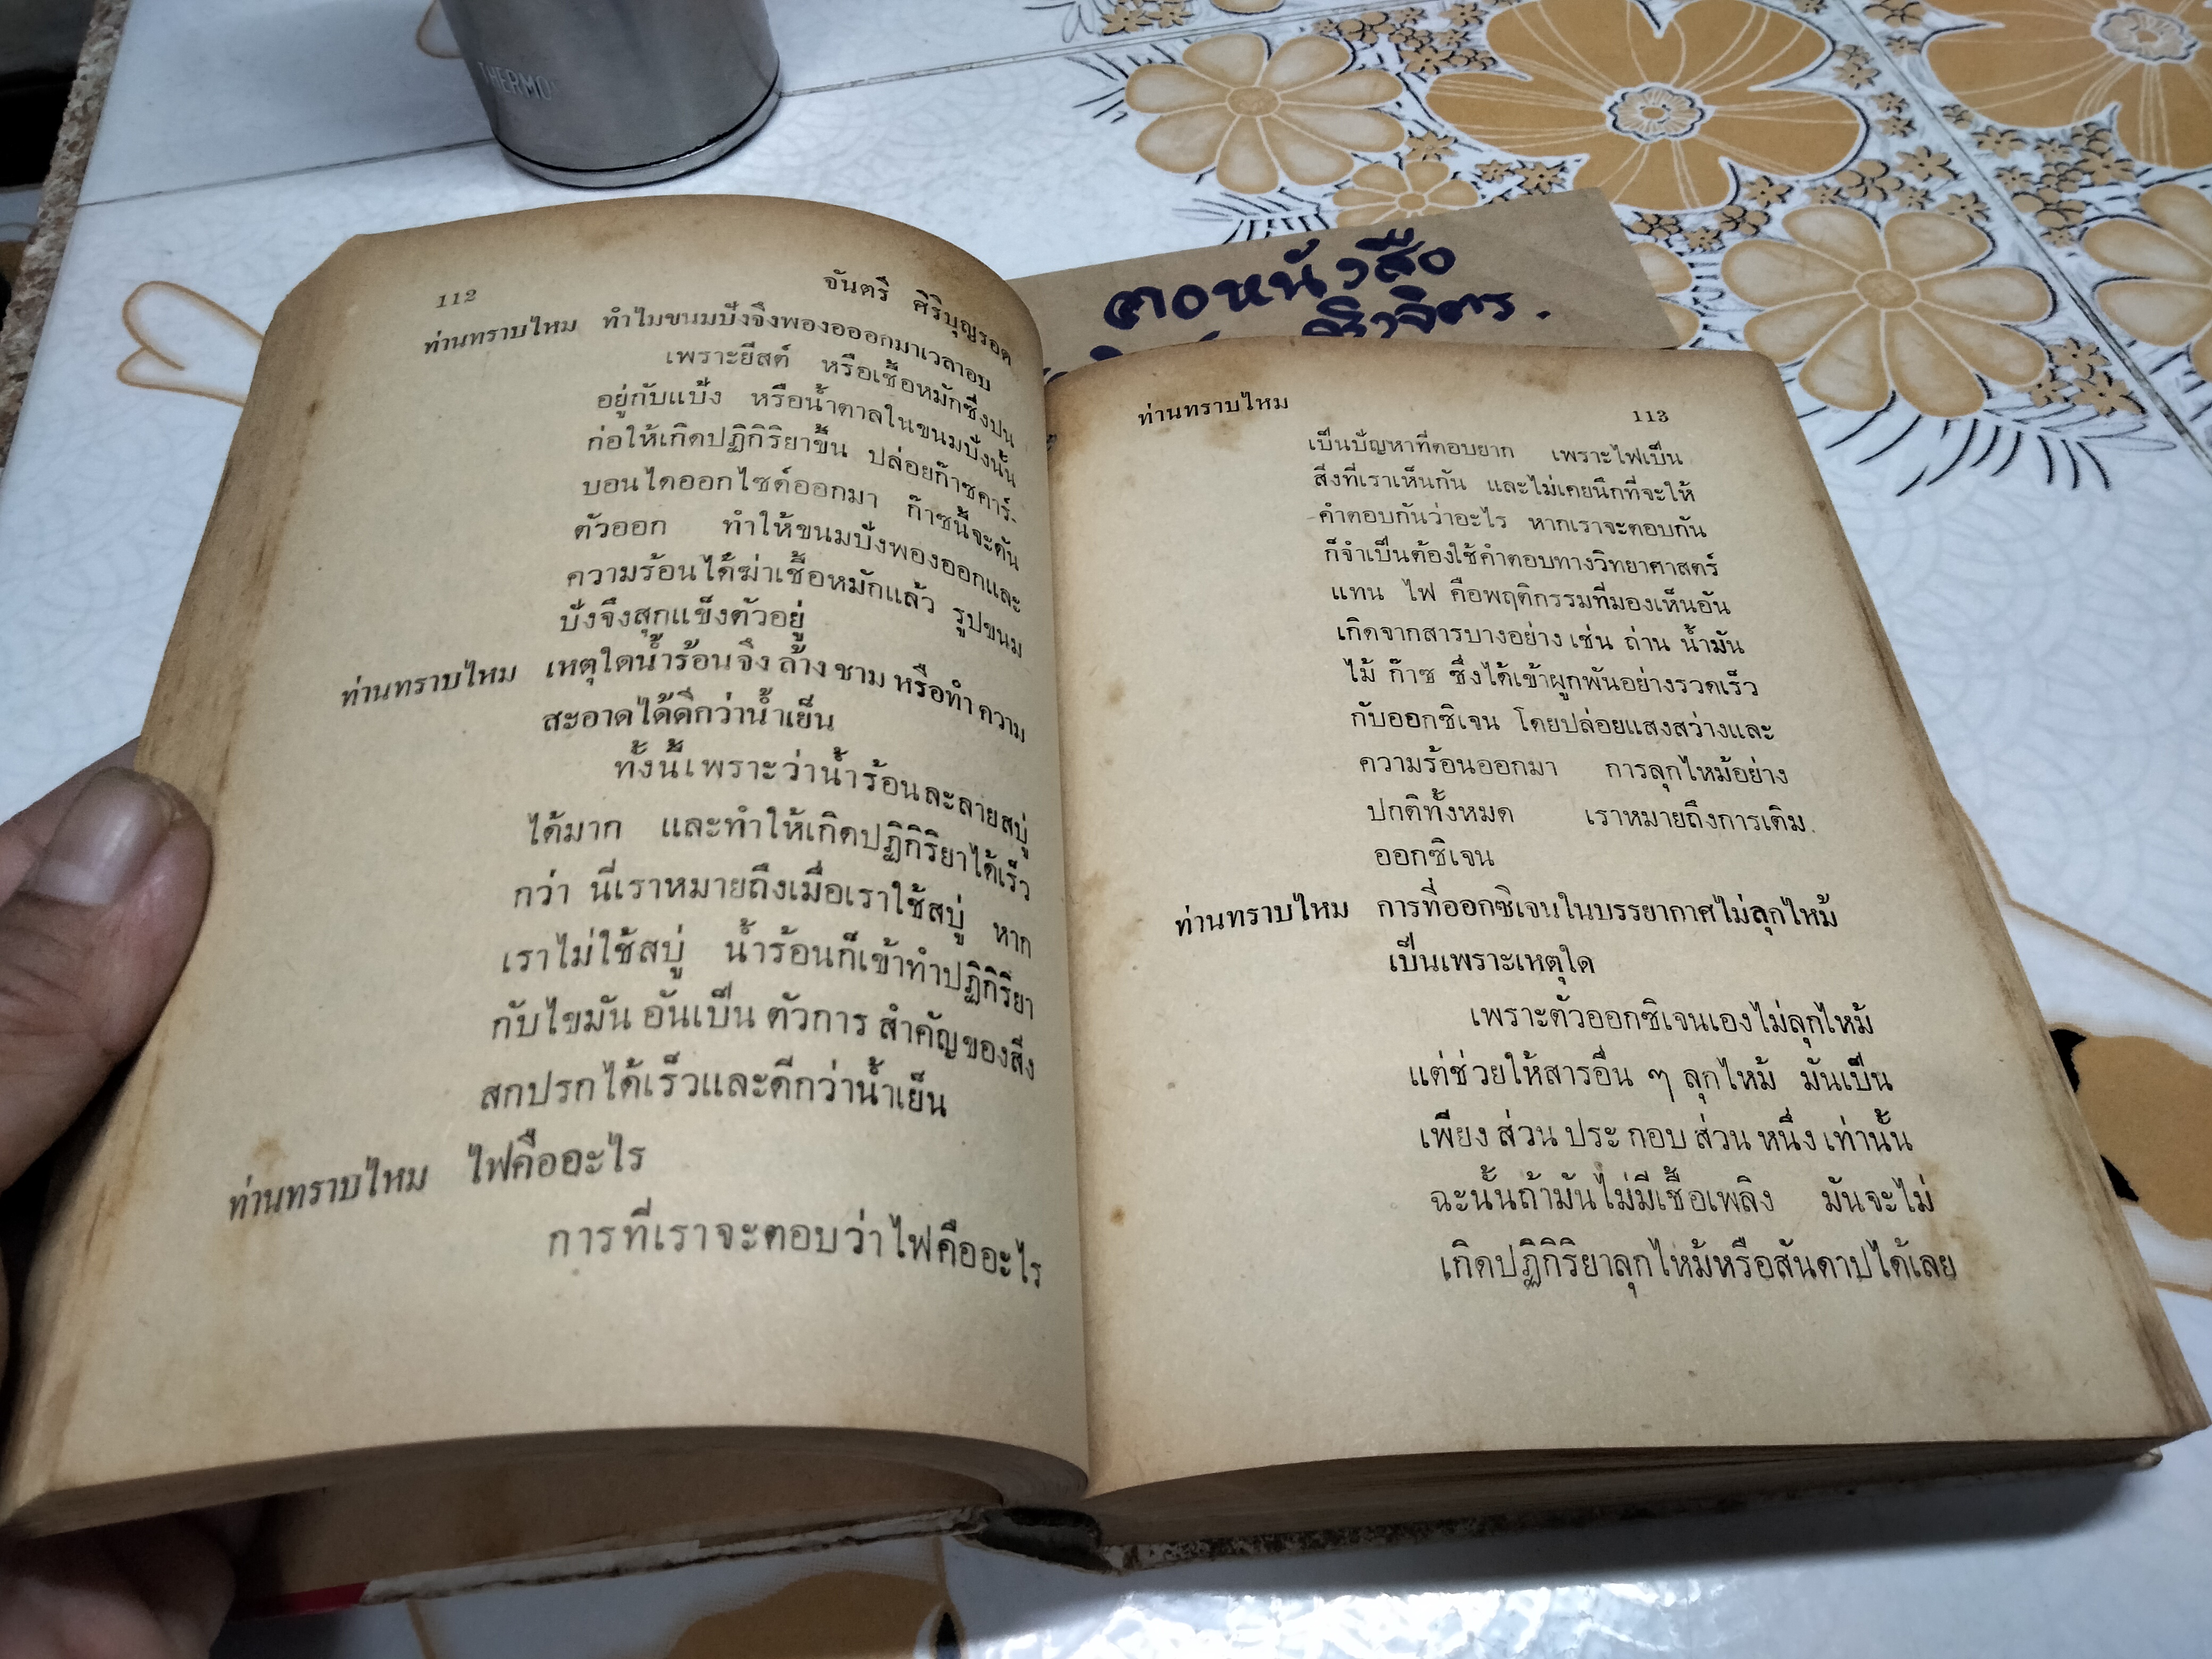 THERMO
คอหนังสือ
112 จันตรี ศิริบุญรอด
ท่านทราบไหม ทำไมขนมปังจึงพองออกมาเวลาอบ
เพราะยีสต์ หรือเชื้อหมักซึ่งปน
อยู่กับแป้ง หรือน้ำตาลในขนมปังนั้น
ก่อให้เกิดปฏิกิริยาขึ้น ปล่อยก๊าซคาร์-
บอนไดออกไซด์ออกมา ก๊าซนี้จะดัน
ตัวออก ทำให้ขนมปังพองออกและ
ความร้อนได้ฆ่าเชื้อหมักแล้ว รูปขนม
ปังจึงสุกแข็งตัวอยู่
ท่านทราบไหม เหตุใดน้ำร้อนจึง ล้าง ชาม หรือทำ ความ
สะอาดได้ดีกว่าน้ำเย็น
ทั้งนี้เพราะว่าน้ำร้อนละลายสบู่
ได้มาก และทำให้เกิดปฏิกิริยาได้เร็ว
กว่า นี่เราหมายถึงเมื่อเราใช้สบู่ หาก
เราไม่ใช้สบู่ น้ำร้อนก็เข้าทำปฏิกิริยา
กับไขมัน อันเป็น ตัวการ สำคัญของสิ่ง
สกปรกได้เร็วและดีกว่าน้ำเย็น
ท่านทราบไหม ไฟคืออะไร
การที่เราจะตอบว่าไฟคืออะไร
ท่านทราบไหม 113
เป็นปัญหาที่ตอบยาก เพราะไฟเป็น
สิ่งที่เราเห็นกัน และไม่เคยนึกที่จะให้
คำตอบกันว่าอะไร หากเราจะตอบกัน
ก็จำเป็นต้องใช้คำตอบทางวิทยาศาสตร์
แทน ไฟ คือพฤติกรรมที่มองเห็นอัน
เกิดจากสารบางอย่าง เช่น ถ่าน น้ำมัน
ไม้ ก๊าซ ซึ่งได้เข้าผูกพันอย่างรวดเร็ว
กับออกซิเจน โดยปล่อยแสงสว่างและ
ความร้อนออกมา การลุกไหม้อย่าง
ปกติทั้งหมด เราหมายถึงการเติม
ออกซิเจน
ท่านทราบไหม การที่ออกซิเจนในบรรยากาศไม่ลุกไหม้
เป็นเพราะเหตุใด
เพราะตัวออกซิเจนเองไม่ลุกไหม้
แต่ช่วยให้สารอื่น ๆ ลุกไหม้ มันเป็น
เพียง ส่วน ประ กอบ ส่วน หนึ่ง เท่านั้น
ฉะนั้นถ้ามันไม่มีเชื้อเพลิง มันจะไม่
เกิดปฏิกิริยาลุกไหม้หรือสันดาปได้เลย